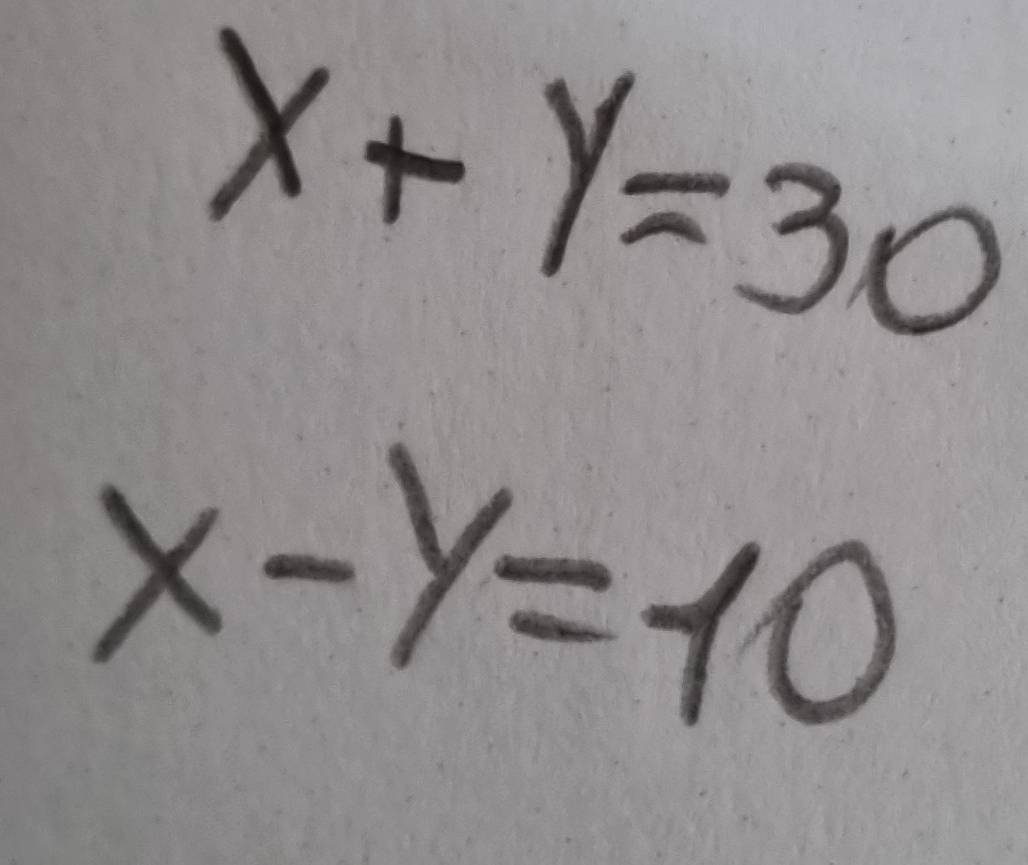 X + Y = 30
X - Y = 10